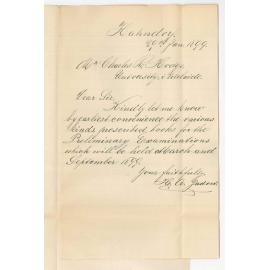 Hahndorf,
29th Jan 1899.
Mr Charles R. Hodge
University, Adelaide.
Dear Sir,
Kindly let me know
by earliest convenience the various
kinds presented books for the
Preliminary Examinations
which will be held March and
September 1899.
Yours faithfully